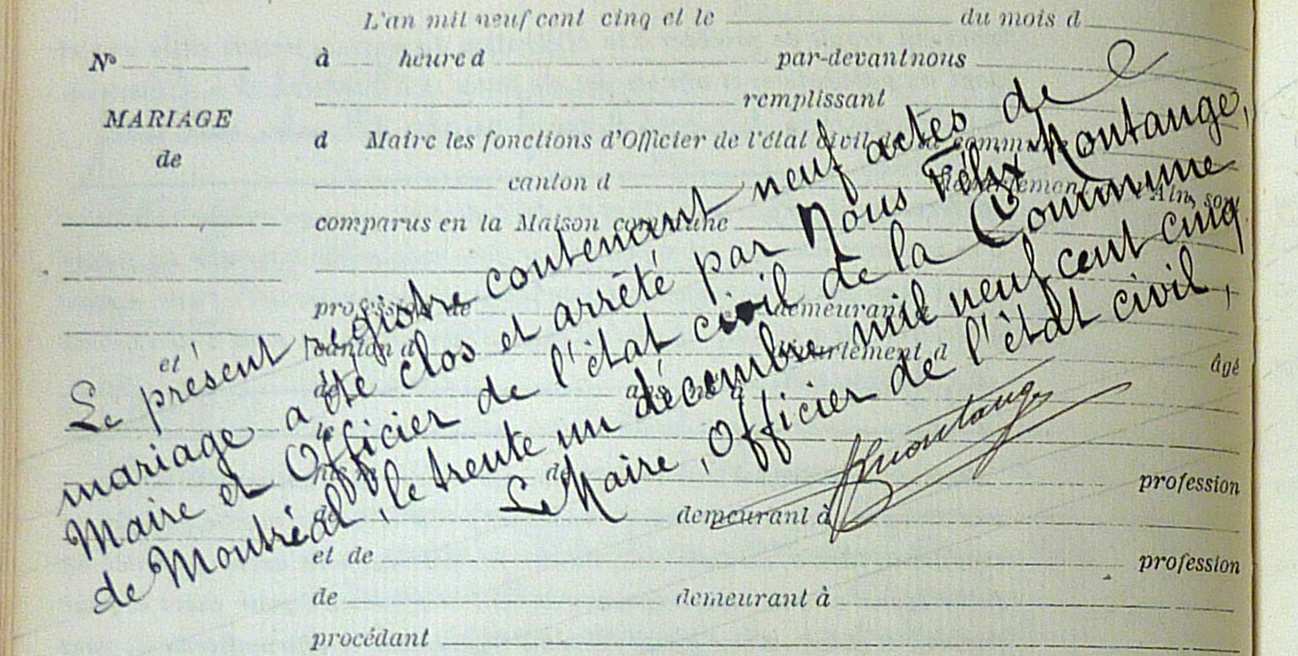 L'an mil neuf cent cinq et le du mois d
N° à heure d par-devant nous
remplissant
MARIAGE d Maire les fonctions d'Officier de l'état civil de la commune
de canton d département de l'Ain, son
comparus en la Maison commune
profession de demeurant à
et canton d département d âgé
de
de profession
demeurant à
et de profession
de demeurant à
procédant
Le présent registre contenant neuf actes de
mariage a été clos et arrêté par Nous Félix Montange,
Maire et Officier de l'état civil de la Commune
de Montréal, le trente un décembre mil neuf cent cinq
Le Maire, Officier de l'état civil,
Montange